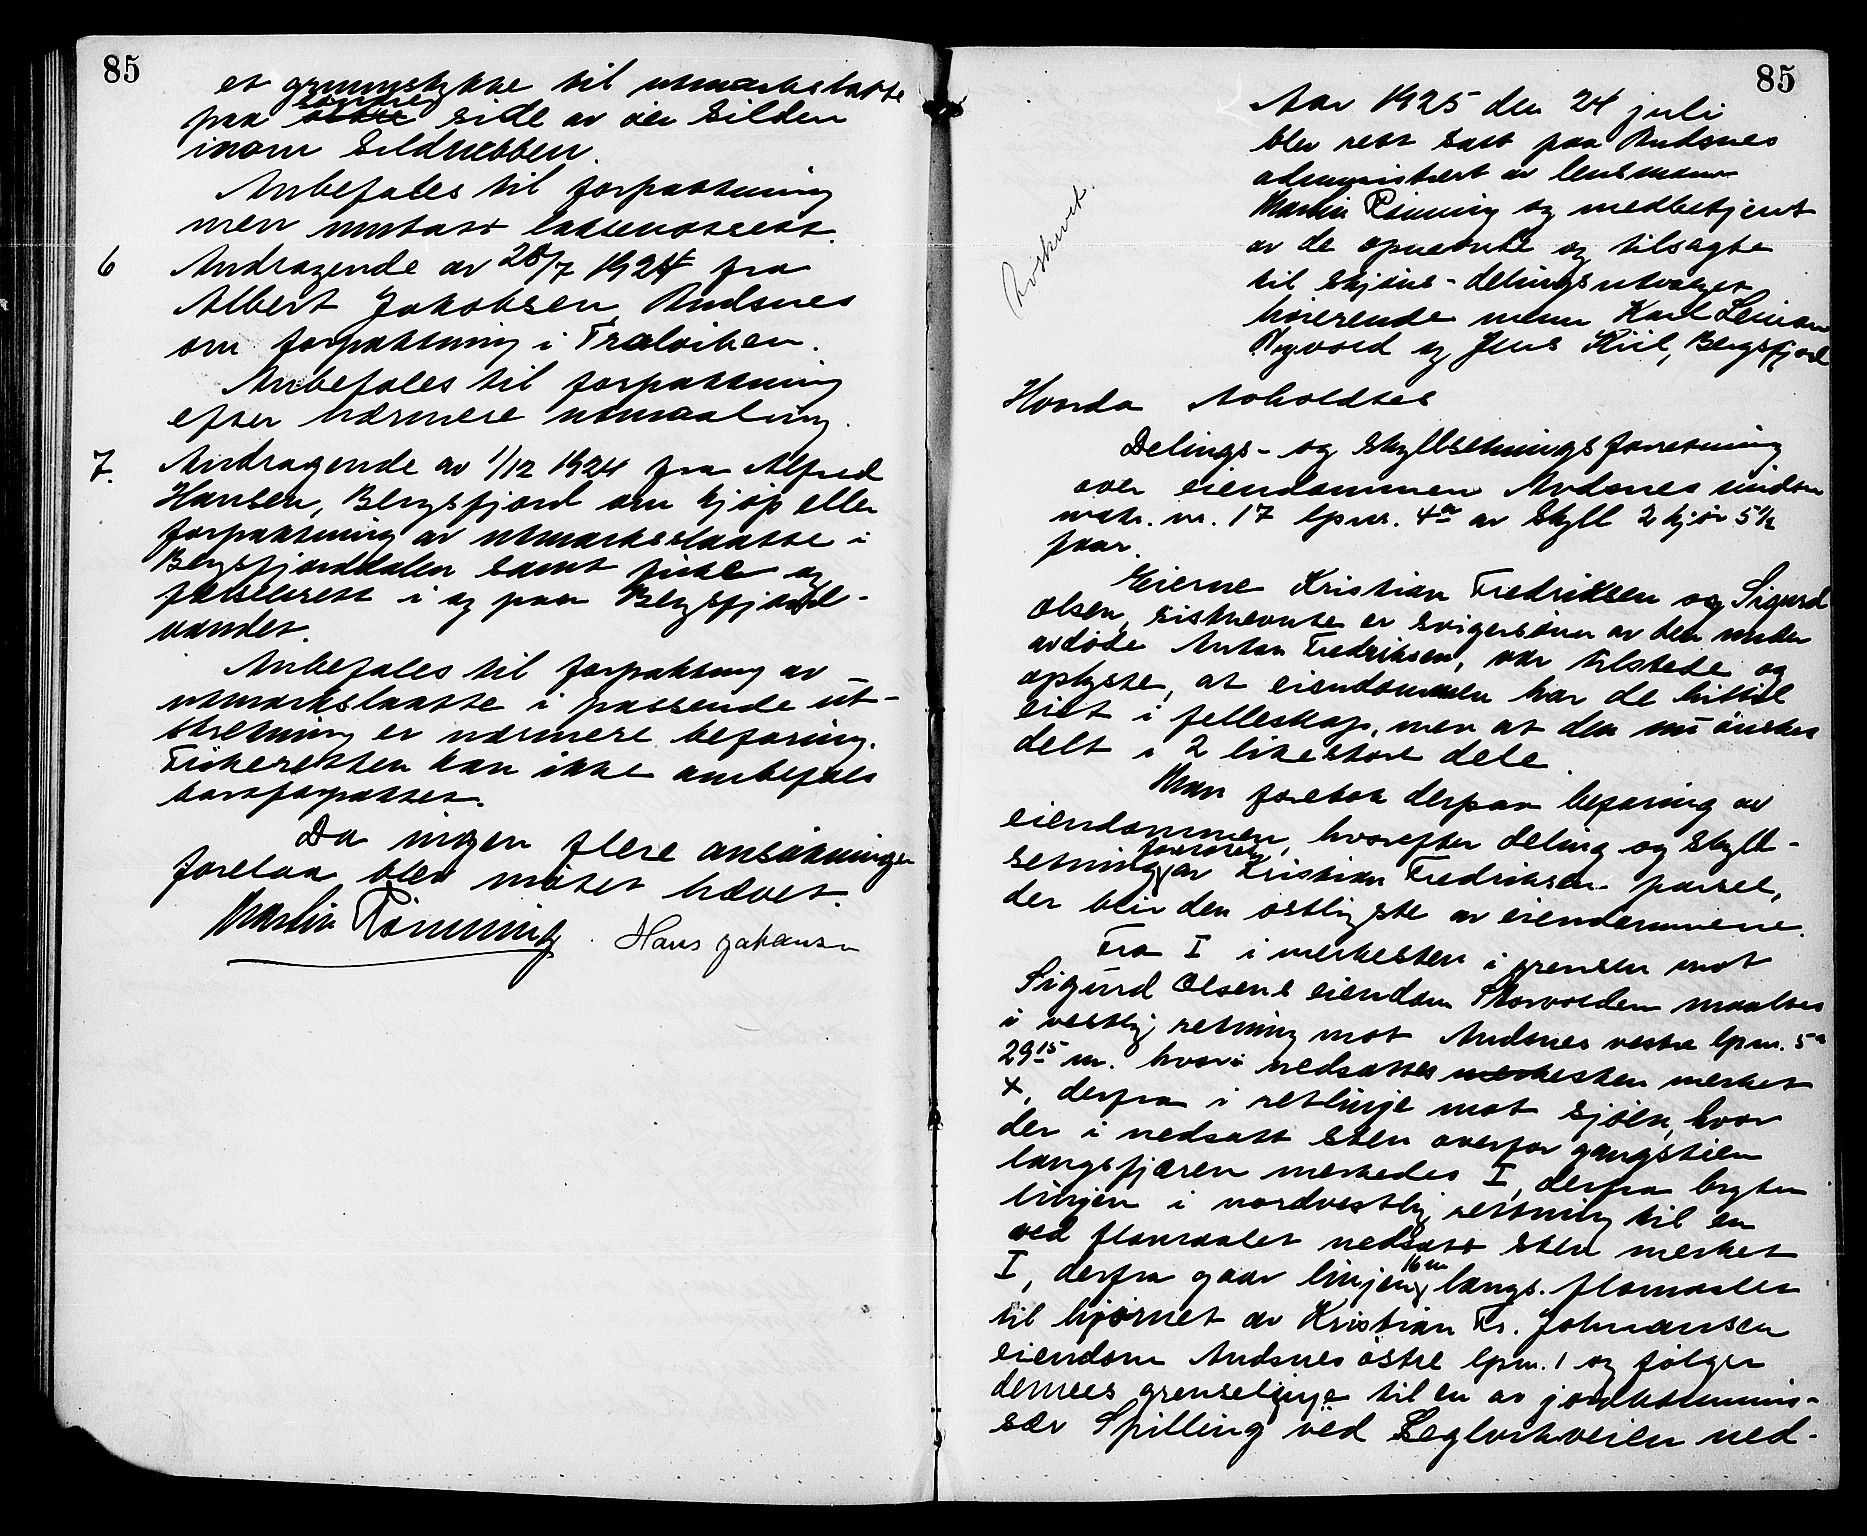 85
et grunnstykke til utmarkslatte
paa søndre side av øen Silden
inom Sildnebben.
Anbefales til forpaktning
men undtatt laksenotrett.
6 Andragende av 28/7 1924 fra
Albert Jakobsen, Andsnes
om forpaktning i Tralviken.
Anbefales til forpaktning
efter nærmere utmaaling.
7. Andragende av 1/12 1924 fra Alfred
Hansen, Bergsfjord om kjøp eller
forpaktning av utmarksslaatte i
Bergsfjorddalen samt fiske og
færdesrett i og paa Bergsfjord-
vandet.
Anbefales til forpaktning av
utmarkslaatte i passende ut-
strekning er nærmere befaring.
Fiskeretten kan ikke anbefales
bortforpaktet.
Da ingen flere ansøkninger
forelaa blev møtet hævet.
Martin Rønning Hans Johansen
85
Aar 1925 den 24 juli
blev rett satt paa Andsnes
administrert av lensmann
Martin Rønning og medbetjent
av de opnevnte og tilsagte
til skjøns-delingsutvalget
hørende menn Karl Simon
Øyvold og Jens Kiil, Bergsfjord
Avskrevet.
Hvorda Avholdtes
Delings- og skyldsetningsforretning
over eiendommen Andsnes midtre
matr. nr. 17 lpnr. 4a av skyld 2 skjør 5 1/2
Eierne Kristian Fredriksen og Sigurd
Olsen, sistnevnte er svigersønn av den nu
avdøde Anton Fredriksen, var tilstede og
oplyste, at eiendommen har de hittil
eiet i felleskap, men at den nu ønskes
delt i 2 likestore dele.
Man foretok derpaa befaring av
eiendommen, hvorefter deling og skyld-
setning foretokes av Kristian Fredriksen parsel,
der blir den østligste av eiendommene.
Fra I i merkesten i grensen mot
Sigurd Olsens eiendom Storvolden maaltes
i vestlig retning mot Andsnes vestre lpnr. 5a
29 15 m. hvori nedsattes merkesten merket
+, derfra i retlinje mot sjøen, hvor
der i nedsatt sten overfor gangstien
langsfjæren merkedes I, derfra bryter
linjen i nordvestlig retning til en
ved flomaalet nedsatt sten merket
I, derfra gaar linjen 16 m langs. flomaalet
til hjørnet av Kristian Fr. Johnansen
eiendom Andsnes østre lpnr. 1 og følger
dennes grenselinje til en av jordkommis-
sær Spilling ved Leglvikveien ned-